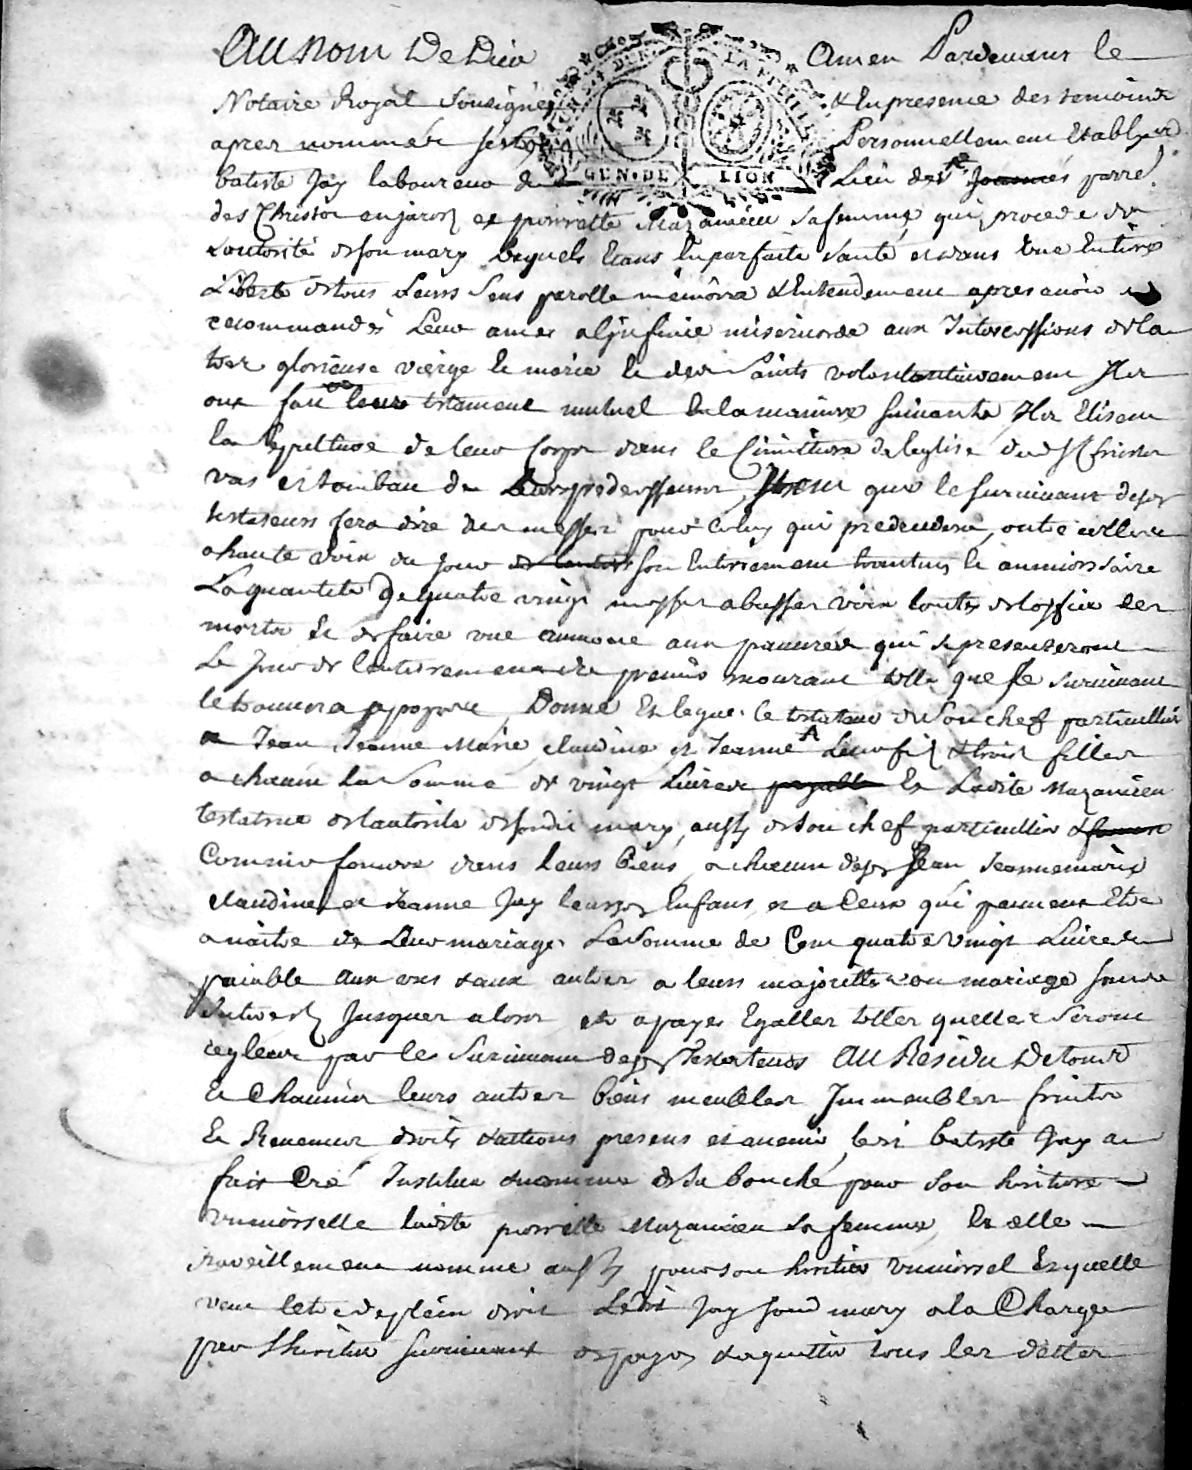 Au nom De Dieu Amen Pardevant le
Notaire Royal Sousigné & En presence des temoins
apres nommés Personnellement Etablys
batiste Jay laboureur du Lieu des parre
des Christo en jarez et pierrette Mazancieu sa femme qui procede de
Lautorité de son mary Lequels Etans En parfaite Santé et dans Une Entiere
Liberté de tous Leurs Sens parolle memoire & Entendement apres avoir
recommandés Leur ames a l'jnfinie misericorde aux Intercessions de la
tres glorieuse vierge le marie le des Saints volontairement Jls
ont fait leur testament mutuel En la maniere suivante Jls Elisent
la Sepulture de leur Corps dans le Cimittiere de leglise du St Christo
vas et tombau de Leurs predecesseurs Jtem que le survivant desd
testateurs fera dire des messes pour Celuy qui predecedera, outre celles
a haute voix du jour de son Enterrement trantin le anniverssaire
La quantité De quatre vingt messes a basses voix toutes de loffice des
morts Et de faire une aumone aux pauvres qui se presenteront
Le Jour de lenterrement du premier mourant telle que le survivant
le trouvera apropos, Donne Et legue le testateur de Son chef particullier
a Jean Jeanne Marie claudine et Jeanne A Leur fils & trois filles
a chacun La Somme de vingt Livres payable Et Ladite Mazancieu
testatrice de lautorité de sondit mary, aussy de son chef particullier &
Comme dans leurs biens, a chacun desd Jean Jeannemarie
claudine et Jeanne Jay leursd Enfans et a Ceux qui peuvent Etre
a naitre de Leur mariage La Somme de Cent quatre vingt Livres
paiable aux uns & aux autres a leurs majorittés ou mariage sans
Interest Jusques alors et a payes Egalles telles quelles Seront
regleés par le Survivant desd Testateurs Au Residu De tous
Et Chacuns leurs autres biens meubles Immeubles fruits
Et Revenus droits & actions presens et avenir, ledi batiste Jay a
fait Creé Institué & nommé de Sa bouche pour Son heritiere
universselle ladite pierrette Mazancieu Sa femme, Et elle
pareillement nomme aussy pour son heritier universel Enquelle
veut letre de plein droit Ledit Jay son mary a la Charge
par lheritier survivant de payer & aquitter tous les dettes
GEN·DE LION